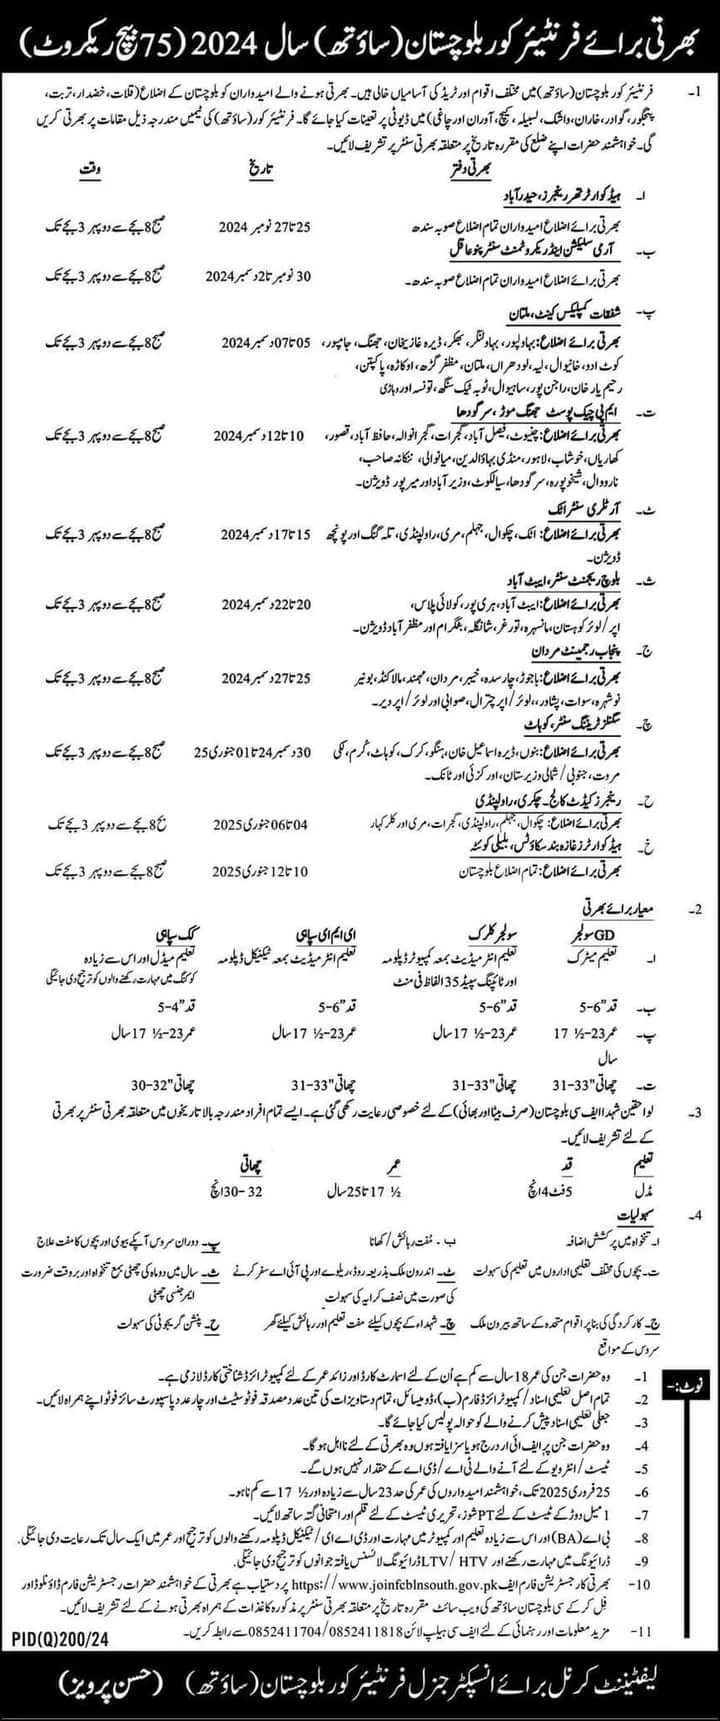 بھرتی برائے فرنٹیئر کور بلوچستان (ساؤتھ) سال 2024 (75 بیچ ریکروٹ)
1- فرنٹیئر کور بلوچستان (ساؤتھ) میں مختلف اقوام اور ٹریڈ کی آسامیاں خالی ہیں۔ بھرتی ہونے والے امیدواران کو بلوچستان کے اضلاع (قلات، خضدار، تربت،
پنجگور، گوادر، خاران، واشک، لسبیلہ، کیچ، آوران اور چاغی) میں ڈیوٹی پر تعینات کیا جائے گا۔ فرنٹیئر کور (ساؤتھ) کی ٹیمیں مندرجہ ذیل مقامات پر بھرتی کریں
گی۔ خواہشمند حضرات اپنے ضلع کی مقررہ تاریخ پر متعلقہ بھرتی سنٹر پر تشریف لائیں۔
بھرتی دفتر تاریخ وقت
ا۔ ہیڈ کوارٹر تھر رینجرز، حیدرآباد
بھرتی برائے اضلاع امیدواران تمام اضلاع صوبہ سندھ 25 تا 27 نومبر 2024 صبح 8 بجے سے دوپہر 3 بجے تک
ب۔ آرمی سلیکشن اینڈ ریکروٹمنٹ سنٹر پنو عاقل
بھرتی برائے اضلاع امیدواران تمام اضلاع صوبہ سندھ۔ 30 نومبر تا 2 دسمبر 2024 صبح 8 بجے سے دوپہر 3 بجے تک
پ۔ شفقات کمپلیکس کینٹ، ملتان
بھرتی برائے اضلاع: بہاولپور، بہاولنگر، بھکر، ڈیرہ غازیخان، جھنگ، جامپور، 05 تا 07 دسمبر 2024 صبح 8 بجے سے دوپہر 3 بجے تک
کوٹ ادو، خانیوال، لیہ، لودھراں، ملتان، مظفر گڑھ، اوکاڑہ، پاکپتن،
رحیم یار خان، راجن پور، ساہیوال، ٹوبہ ٹیک سنگھ، تونسہ اور وہاڑی
ت۔ ایم پی چیک پوسٹ جھنگ موڑ، سرگودھا
بھرتی برائے اضلاع: چنیوٹ، فیصل آباد، گجرات، گجرانوالہ، حافظ آباد، قصور، 10 تا 12 دسمبر 2024 صبح 8 بجے سے دوپہر 3 بجے تک
کھاریاں، خوشاب، لاہور، منڈی بہاؤالدین، میانوالی، ننکانہ صاحب،
نارووال، شیخوپورہ، سرگودھا، سیالکوٹ، وزیر آباد اور میر پور ڈویژن۔
ٹ۔ آرٹلری سنٹر اٹک
بھرتی برائے اضلاع: اٹک، چکوال، جہلم، مری، راولپنڈی، تلہ گنگ اور پونچھ 15 تا 17 دسمبر 2024 صبح 8 بجے سے دوپہر 3 بجے تک
ڈویژن۔
ث۔ بلوچ ریجمنٹ سنٹر، ایبٹ آباد
بھرتی برائے اضلاع: ایبٹ آباد، ہری پور، کولائی پلاس، 20 تا 22 دسمبر 2024 صبح 8 بجے سے دوپہر 3 بجے تک
اپر/لوئر کوہستان، مانسہرہ، تورغر، شانگلہ، بٹگرام اور مظفر آباد ڈویژن۔
ج۔ پنجاب رجمنٹ مردان
بھرتی برائے اضلاع: باجوڑ، چارسدہ، خیبر، مردان، مہمند، مالاکنڈ، بونیر 25 تا 27 دسمبر 2024 صبح 8 بجے سے دوپہر 3 بجے تک
نوشہرہ، سوات، پشاور،، لوئر/اپر چترال، صوابی اور لوئر/اپر دیر۔
چ۔ سگنلز ٹریننگ سنٹر، کوہاٹ
بھرتی برائے اضلاع: بنوں، ڈیرہ اسماعیل خان، ہنگو، کرک، کوہاٹ، کُرم، لکی 30 دسمبر 24 تا 01 جنوری 25 صبح 8 بجے سے دوپہر 3 بجے تک
مروت، جنوبی/شمالی وزیرستان، اورکزئی اور ٹانک۔
ح۔ رینجرز کیڈٹ کالج۔ چکری، راولپنڈی
بھرتی برائے اضلاع: چکوال، جہلم، راولپنڈی، گجرات، مری اور کلر کہار 04 تا 06 جنوری 2025 صبح 8 بجے سے دوپہر 3 بجے تک
خ۔ ہیڈ کوارٹرز غازہ بند سکاؤٹس، بلیلی کوئٹہ
بھرتی برائے اضلاع: تمام اضلاع بلوچستان 10 تا 12 جنوری 2025 صبح 8 بجے سے دوپہر 3 بجے تک
2- معیار برائے بھرتی
GD سولجر سولجر کلرک ای ایم ای سپاہی کک سپاہی
ا۔ تعلیم میٹرک تعلیم انٹرمیڈیٹ بمعہ کمپیوٹر ڈپلومہ تعلیم انٹرمیڈیٹ بمعہ ٹیکنیکل ڈپلومہ تعلیم میڈل اور اس سے زیادہ
اور ٹائپنگ سپیڈ 35 الفاظ فی منٹ کوکنگ میں مہارت رکھنے والوں کو ترجیح دی جائیگی
ب۔ قد "6-5 قد "6-5 قد "6-5 قد "4-5
پ۔ عمر 23-½ 17 عمر 23-½ 17 سال عمر 23-½ 17 سال عمر 23-½ 17 سال
سال
ت۔ چھاتی "33-31 چھاتی "33-31 چھاتی "33-31 چھاتی "32-30
3- لواحقین شہدا ایف سی بلوچستان (صرف بیٹا اور بھائی) کے لئے خصوصی رعایت رکھی گئی ہے۔ ایسے تمام افراد مندرجہ بالا تاریخوں میں متعلقہ بھرتی سنٹر پر بھرتی
کے لئے تشریف لائیں۔
تعلیم قد عمر چھاتی
مڈل 5 فٹ 4 انچ ½ 17 تا 25 سال 32-30 انچ
4- سہولیات
ا۔ تنخواہ میں پرکشش اضافہ ب۔ مُفت رہائش/کھانا پ۔ دوران سروس آپکے بیوی اور بچوں کا مفت علاج
ت۔ بچوں کی مختلف تعلیمی اداروں میں تعلیم کی سہولت ٹ۔ اندرون ملک بذریعہ روڈ، ریلوے اور پی آئی اے سفر کرنے ث۔ سال میں دو ماہ کی چھٹی بمع تنخواہ اور بروقت ضرورت
کی صورت میں نصف کرایہ کی سہولت ایمرجنسی چھٹی
ج۔ کارکردگی کی بنا پر اقوام متحدہ کے ساتھ بیرون ملک چ۔ شہداء کے بچوں کیلئے مفت تعلیم اور رہائش کیلئے گھر ح۔ پنشن گریجوٹی کی سہولت
سروس کے مواقع
نوٹ:-
1- وہ حضرات جن کی عمر 18 سال سے کم ہے اُن کے لئے اسمارٹ کارڈ اور زائد عمر کے لئے کمپیوٹرائزڈ شناختی کارڈ لازمی ہے۔
2- تمام اصل تعلیمی اسناد/کمپیوٹرائزڈ فارم (ب)، ڈومیسائل، تمام دستاویزات کی تین عدد مصدقہ فوٹوسٹیٹ اور چار عدد پاسپورٹ سائز فوٹو اپنے ہمراہ لائیں۔
3- جعلی تعلیمی اسناد پیش کرنے والے کو حوالہ پولیس کیا جائے گا۔
4- وہ حضرات جن پر ایف آئی آر درج ہو یا سزا یافتہ ہوں وہ بھرتی کے لئے نا اہل ہو گا۔
5- ٹیسٹ/انٹرویو کے لئے آنے والے ٹی اے/ڈی اے کے حقدار نہیں ہوں گے۔
6- 25 فروری 2025 تک، خواہشمند امیدواروں کی عمر کی حد 23 سال سے زیادہ اور ½ 17 سے کم نا ہو۔
7- 1 میل دوڑ کے ٹیسٹ کے لئے PT شوز، تحریری ٹیسٹ کے لئے قلم اور امتحانی گتہ ساتھ لائیں۔
8- بی اے (BA) اور اس سے زیادہ تعلیم اور کمپیوٹر میں مہارت اور ڈی اے ای/ٹیکنیکل ڈپلومہ رکھنے والوں کو ترجیح اور عمر میں ایک سال تک رعایت دی جائیگی۔
9- ڈرائیونگ میں مہارت رکھنے اور LTV/HTV ڈرائیونگ لائسنس یافتہ جوانوں کو ترجیح دی جائیگی۔
10- بھرتی کا رجسٹریشن فارم ایف https://www.joinfcblnsouth.gov.pk پر دستیاب ہے بھرتی کے خواہشمند حضرات رجسٹریشن فارم ڈاؤنلوڈ اور
فِل کر کے سی بلوچستان ساؤتھ کی ویب سائٹ مقررہ تاریخ پر متعلقہ بھرتی سنٹر پر مذکورہ کاغذات کے ہمراہ بھرتی ہونے کے لئے تشریف لائیں۔
11- مزید معلومات اور رہنمائی کے لئے ایف سی ہیلپ لائن 0852411704/0852411818 سے رابطہ کریں۔
PID(Q)200/24
لیفٹیننٹ کرنل برائے انسپکٹر جنرل فرنٹیئر کور بلوچستان (ساؤتھ) (حسن پرویز)